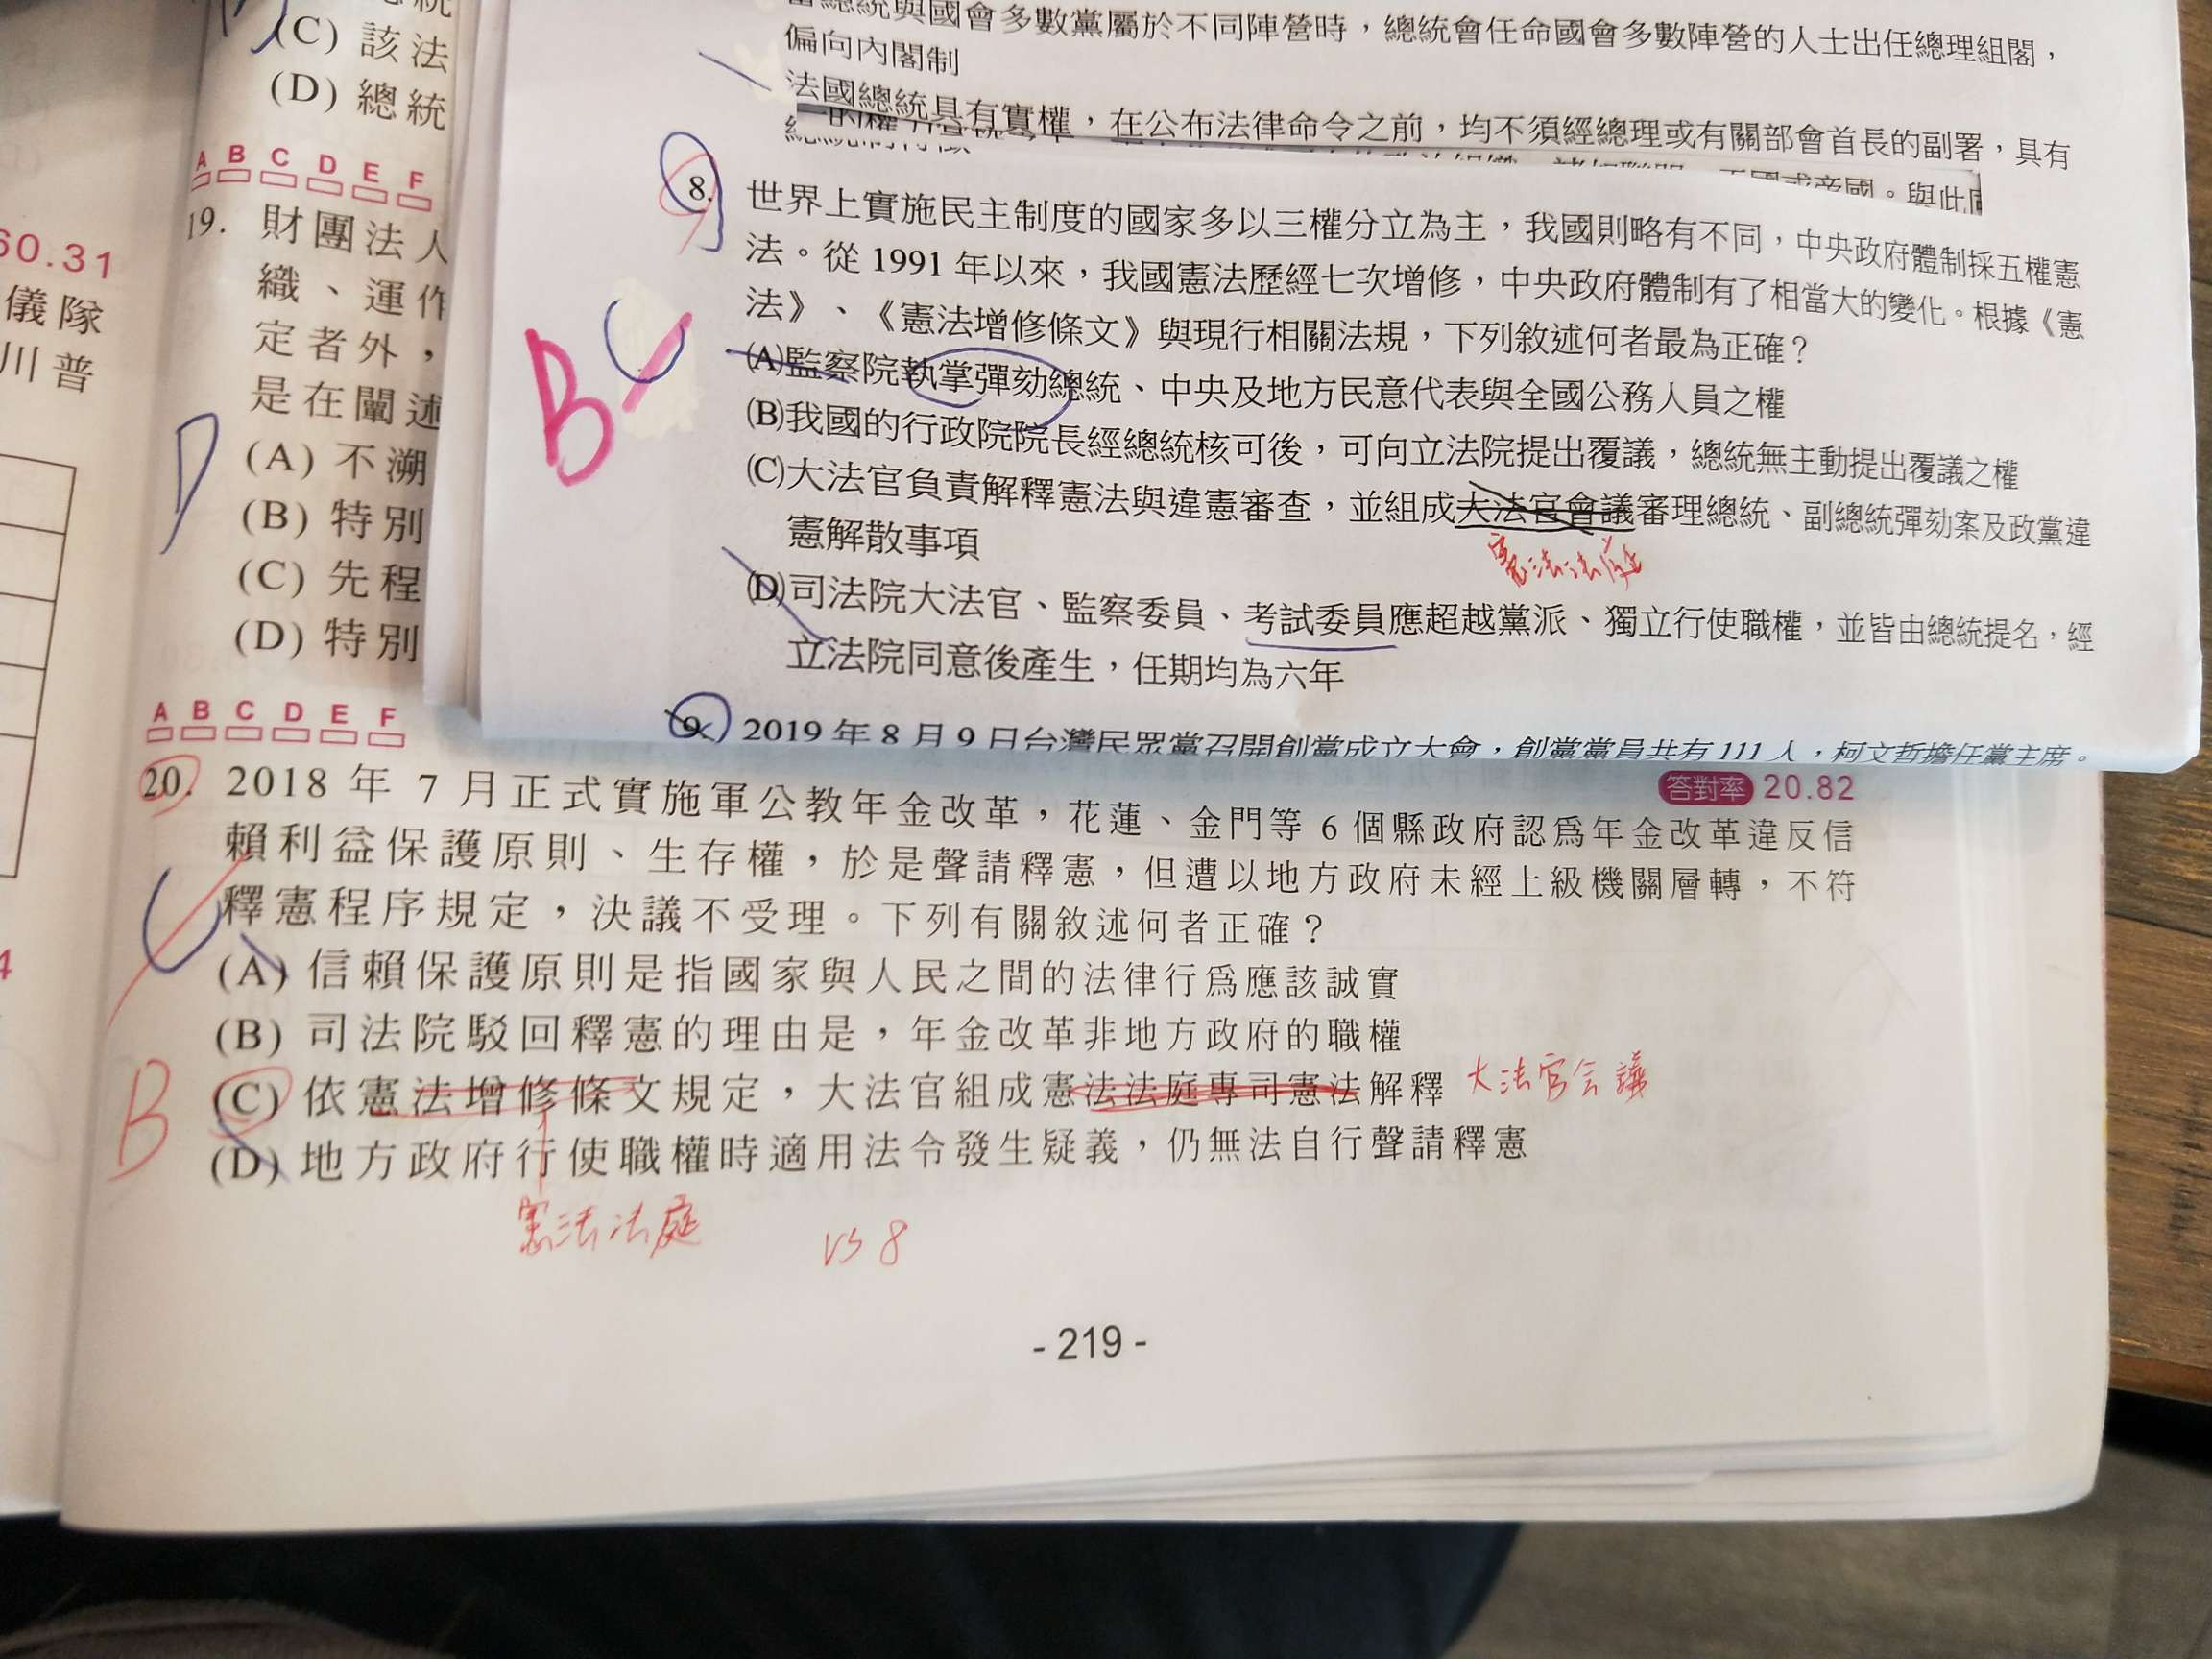 (C) 該法
(D) 總統
A B C D E F
19. 財團法人
織、運作
定者外，
是在闡述
(A) 不溯
(B) 特別
(C) 先程
(D) 特別
D
60.31
儀隊
川普
當總統與國會多數黨屬於不同陣營時，總統會任命國會多數陣營的人士出任總理組閣，
偏向內閣制
法國總統具有實權，在公布法律命令之前，均不須經總理或有關部會首長的副署，具有
8. 世界上實施民主制度的國家多以三權分立為主，我國則略有不同，中央政府體制採五權憲
法。從 1991 年以來，我國憲法歷經七次增修，中央政府體制有了相當大的變化。根據《憲
法》、《憲法增修條文》與現行相關法規，下列敘述何者最為正確？
B C
(A)監察院執掌彈劾總統、中央及地方民意代表與全國公務人員之權
(B)我國的行政院院長經總統核可後，可向立法院提出覆議，總統無主動提出覆議之權
(C)大法官負責解釋憲法與違憲審查，並組成大法官會議審理總統、副總統彈劾案及政黨違
憲解散事項
憲法法庭
(D)司法院大法官、監察委員、考試委員應超越黨派、獨立行使職權，並皆由總統提名，經
立法院同意後產生，任期均為六年
9. 2019 年 8 月 9 日台灣民眾黨召開創黨成立大會，創黨黨員共有 111 人，柯文哲擔任黨主席。
A B C D E F
答對率 20.82
20. 2018 年 7 月正式實施軍公教年金改革，花蓮、金門等 6 個縣政府認為年金改革違反信
賴利益保護原則、生存權，於是聲請釋憲，但遭以地方政府未經上級機關層轉，不符
釋憲程序規定，決議不受理。下列有關敘述何者正確？
C
(A) 信賴保護原則是指國家與人民之間的法律行為應該誠實
(B) 司法院駁回釋憲的理由是，年金改革非地方政府的職權
B
(C) 依憲法增修條文規定，大法官組成憲法法庭專司憲法解釋 大法官會議
(D) 地方政府行使職權時適用法令發生疑義，仍無法自行聲請釋憲
憲法法庭 vs 8
- 219 -